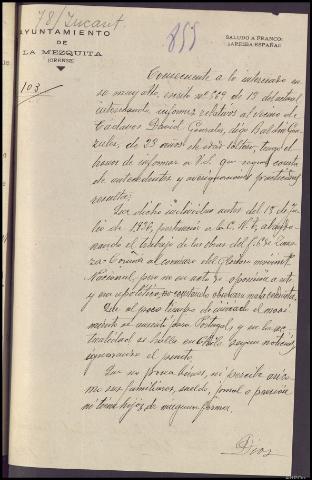 78/Incaut.
855
AYUNTAMIENTO
DE
LA MEZQUITA
(ORENSE)
SALUDO A FRANCO:
¡ARRIBA ESPAÑA!
103
Consecuente a lo interesado en
su muy atto. escrito nº 509 de 13 del actual
interesando informes relativos al vecino de
Cádavos David González, digo Baldin Gon-
zález, de 23 años de edad soltero, tengo el
honor de informar a Vd. que según consta
de antecedentes y averiguaciones practicadas
resulta:
Que dicho individuo antes del 18 de Ju-
lio de 1936, pertenecía a la C.N.T. abando-
nando el trabajo de las obras del F.C. Zamo-
ra-Coruña al comienzo del Glorioso movimiento
Nacional, pero no en acto de oposición a este
y no apolítico, no
mala conducta.
Que al poco tiempo de iniciado el movi-
miento se ausentó para Portugal, y en la ac-
tualidad se halla en según noticias,
ignorando el punto.
Que no posee bienes, ni percibe así co-
mo sus familiares, sueldo, jornal o pensión
ni tiene hijos de ninguna forma.
Dios